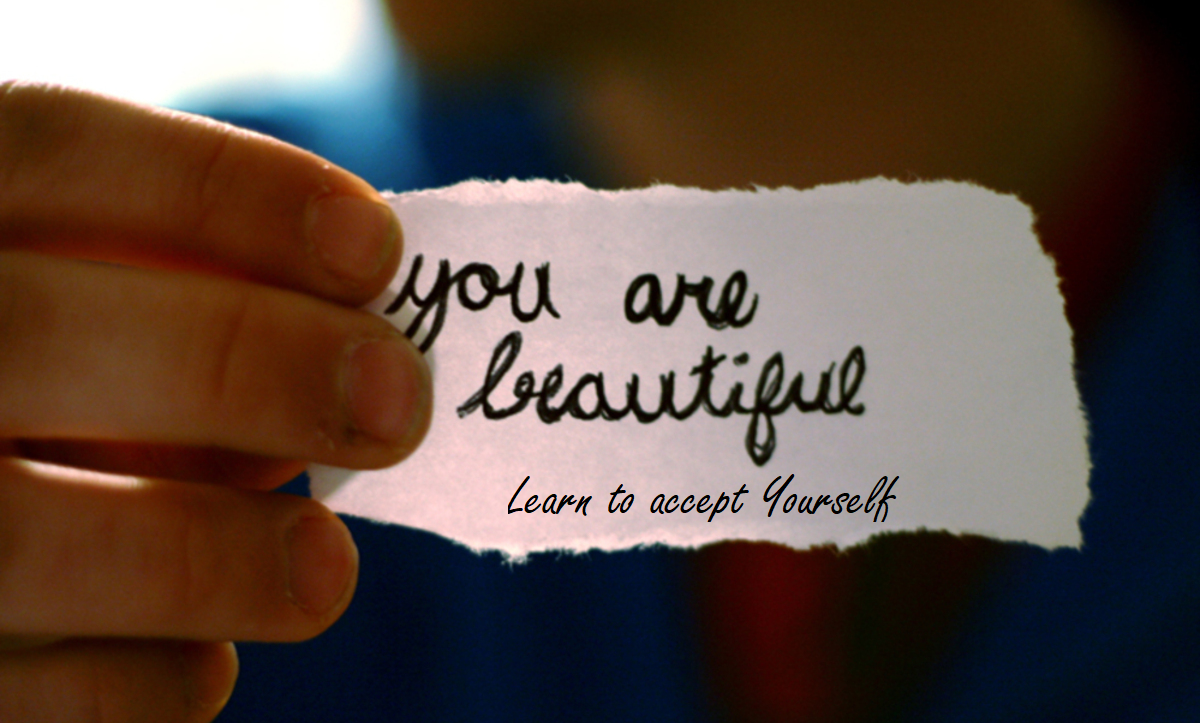 you are
beautiful
Learn to accept Yourself